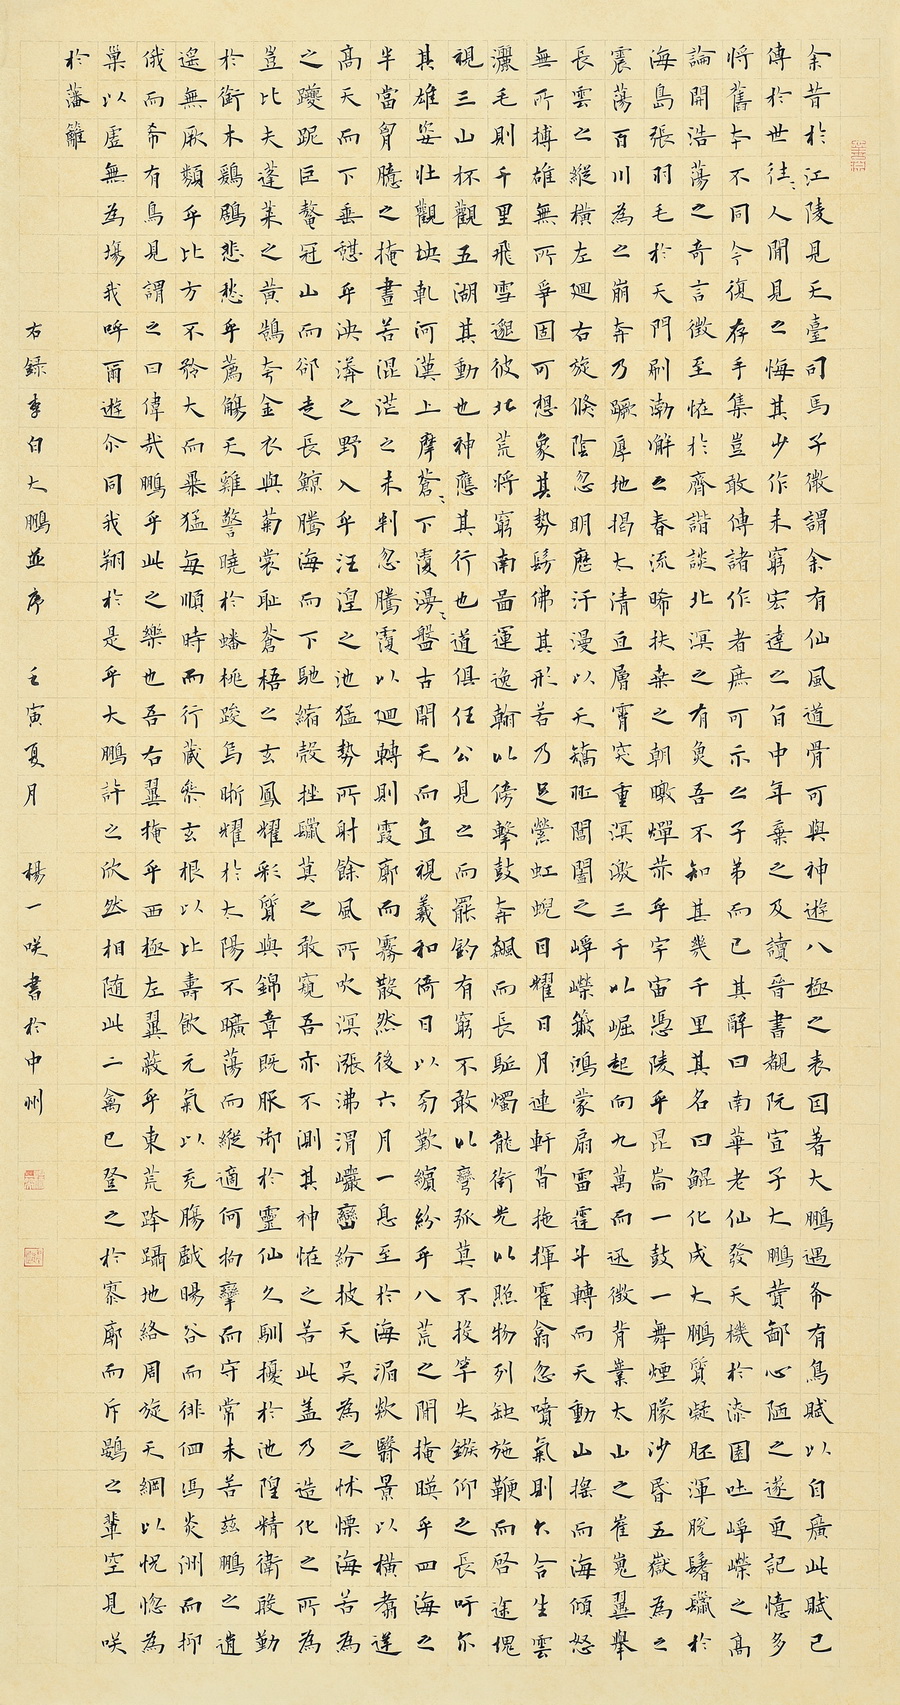 余昔於江陵見天臺司馬子微謂余有仙風道骨可與神遊八極之表因著大鵬遇希有鳥賦以自廣此賦已
傳於世往〻人間見之悔其少作未窮宏達之旨中年棄之及讀晉書覩阮宣子大鵬賛鄙心陋之遂更記憶多
將舊本不同今復存手集豈敢傳諸作者庶可示之子弟而已其辭曰南華老仙發天機於漆園吐崢嶸之高
論開浩蕩之奇言徴至恠於齊諧談北溟之有魚吾不知其幾千里其名曰鯤化成大鵬質凝胚渾脫鬐鬣於
海島張羽毛於天門刷渤澥之春流晞扶桑之朝暾燀赫乎宇宙憑陵乎昆崙一鼓一舞煙朦沙昏五嶽為之
震蕩百川為之崩奔乃蹶厚地揭太清亘層霄突重溟激三千以崛起向九萬而迅徴背業太山之崔嵬翼舉
長雲之縱橫左廻右旋倏陰忽明歷汗漫以夭矯羾閶闔之崢嶸簸鴻蒙扇雷霆斗轉而天動山搖而海傾怒
無所搏雄無所爭固可想象其勢髣佛其形若乃足縈虹蜺目耀日月連軒沓拖揮霍翕忽噴氣則六合生雲
灑毛則千里飛雪邈彼北荒將窮南啚運逸翰以傍擊鼓奔飆而長驅燭龍銜光以照物列缺施鞭而啓途塊
視三山杯觀五湖其動也神應其行也道俱任公見之而罷釣有窮不敢以彎弧莫不投竿失鏃仰之長吁尓
其雄姿壯觀坱軋河漢上摩蒼〻下覆漫〻盤古開天而直視羲和倚日以旁歎繽紛乎八荒之間掩暎乎四海之
半當胷臆之掩晝若混茫之未判忽騰覆以廻轉則霞廓而霧散然後六月一息至於海湄欻翳景以橫翥逆
高天而下垂憇乎泱漭之野入乎汪湟之池猛勢所射餘風所吹溟漲沸渭巖巒紛披天吴為之怵慄海若為
之躨跜巨鼇冠山而卻走長鯨騰海而下馳縮殻挫鬣莫之敢窺吾亦不測其神恠之若此盖乃造化之所為
豈比夫蓬萊之黄鵠夸金衣與菊裳耻蒼梧之玄鳳耀彩質與錦章既服御於靈仙久馴擾於池隍精衛殷勤
於銜木鶢鶋悲愁乎薦觴天雞警曉於蟠桃踆烏晰耀於太陽不曠蕩而縱適何拘攣而守常未若茲鵬之逍
遥無厥類乎比方不矜大而暴猛每順時而行蔵叅玄根以比壽飲元氣以充膓戲暘谷而徘徊馮炎洲而抑
俄而希有鳥見謂之曰偉哉鵬乎此之樂也吾右翼掩乎西極左翼蔽乎東荒跨躡地絡周旋天綱以怳惚為
巢以虛無為場我呼爾遊尒同我翔於是乎大鵬許之欣然相随此二禽已登之於寥廓而斥鷃之輩空見咲
於藩籬
右録李白大鵬並序 壬寅夏月 楊一咲書於中州